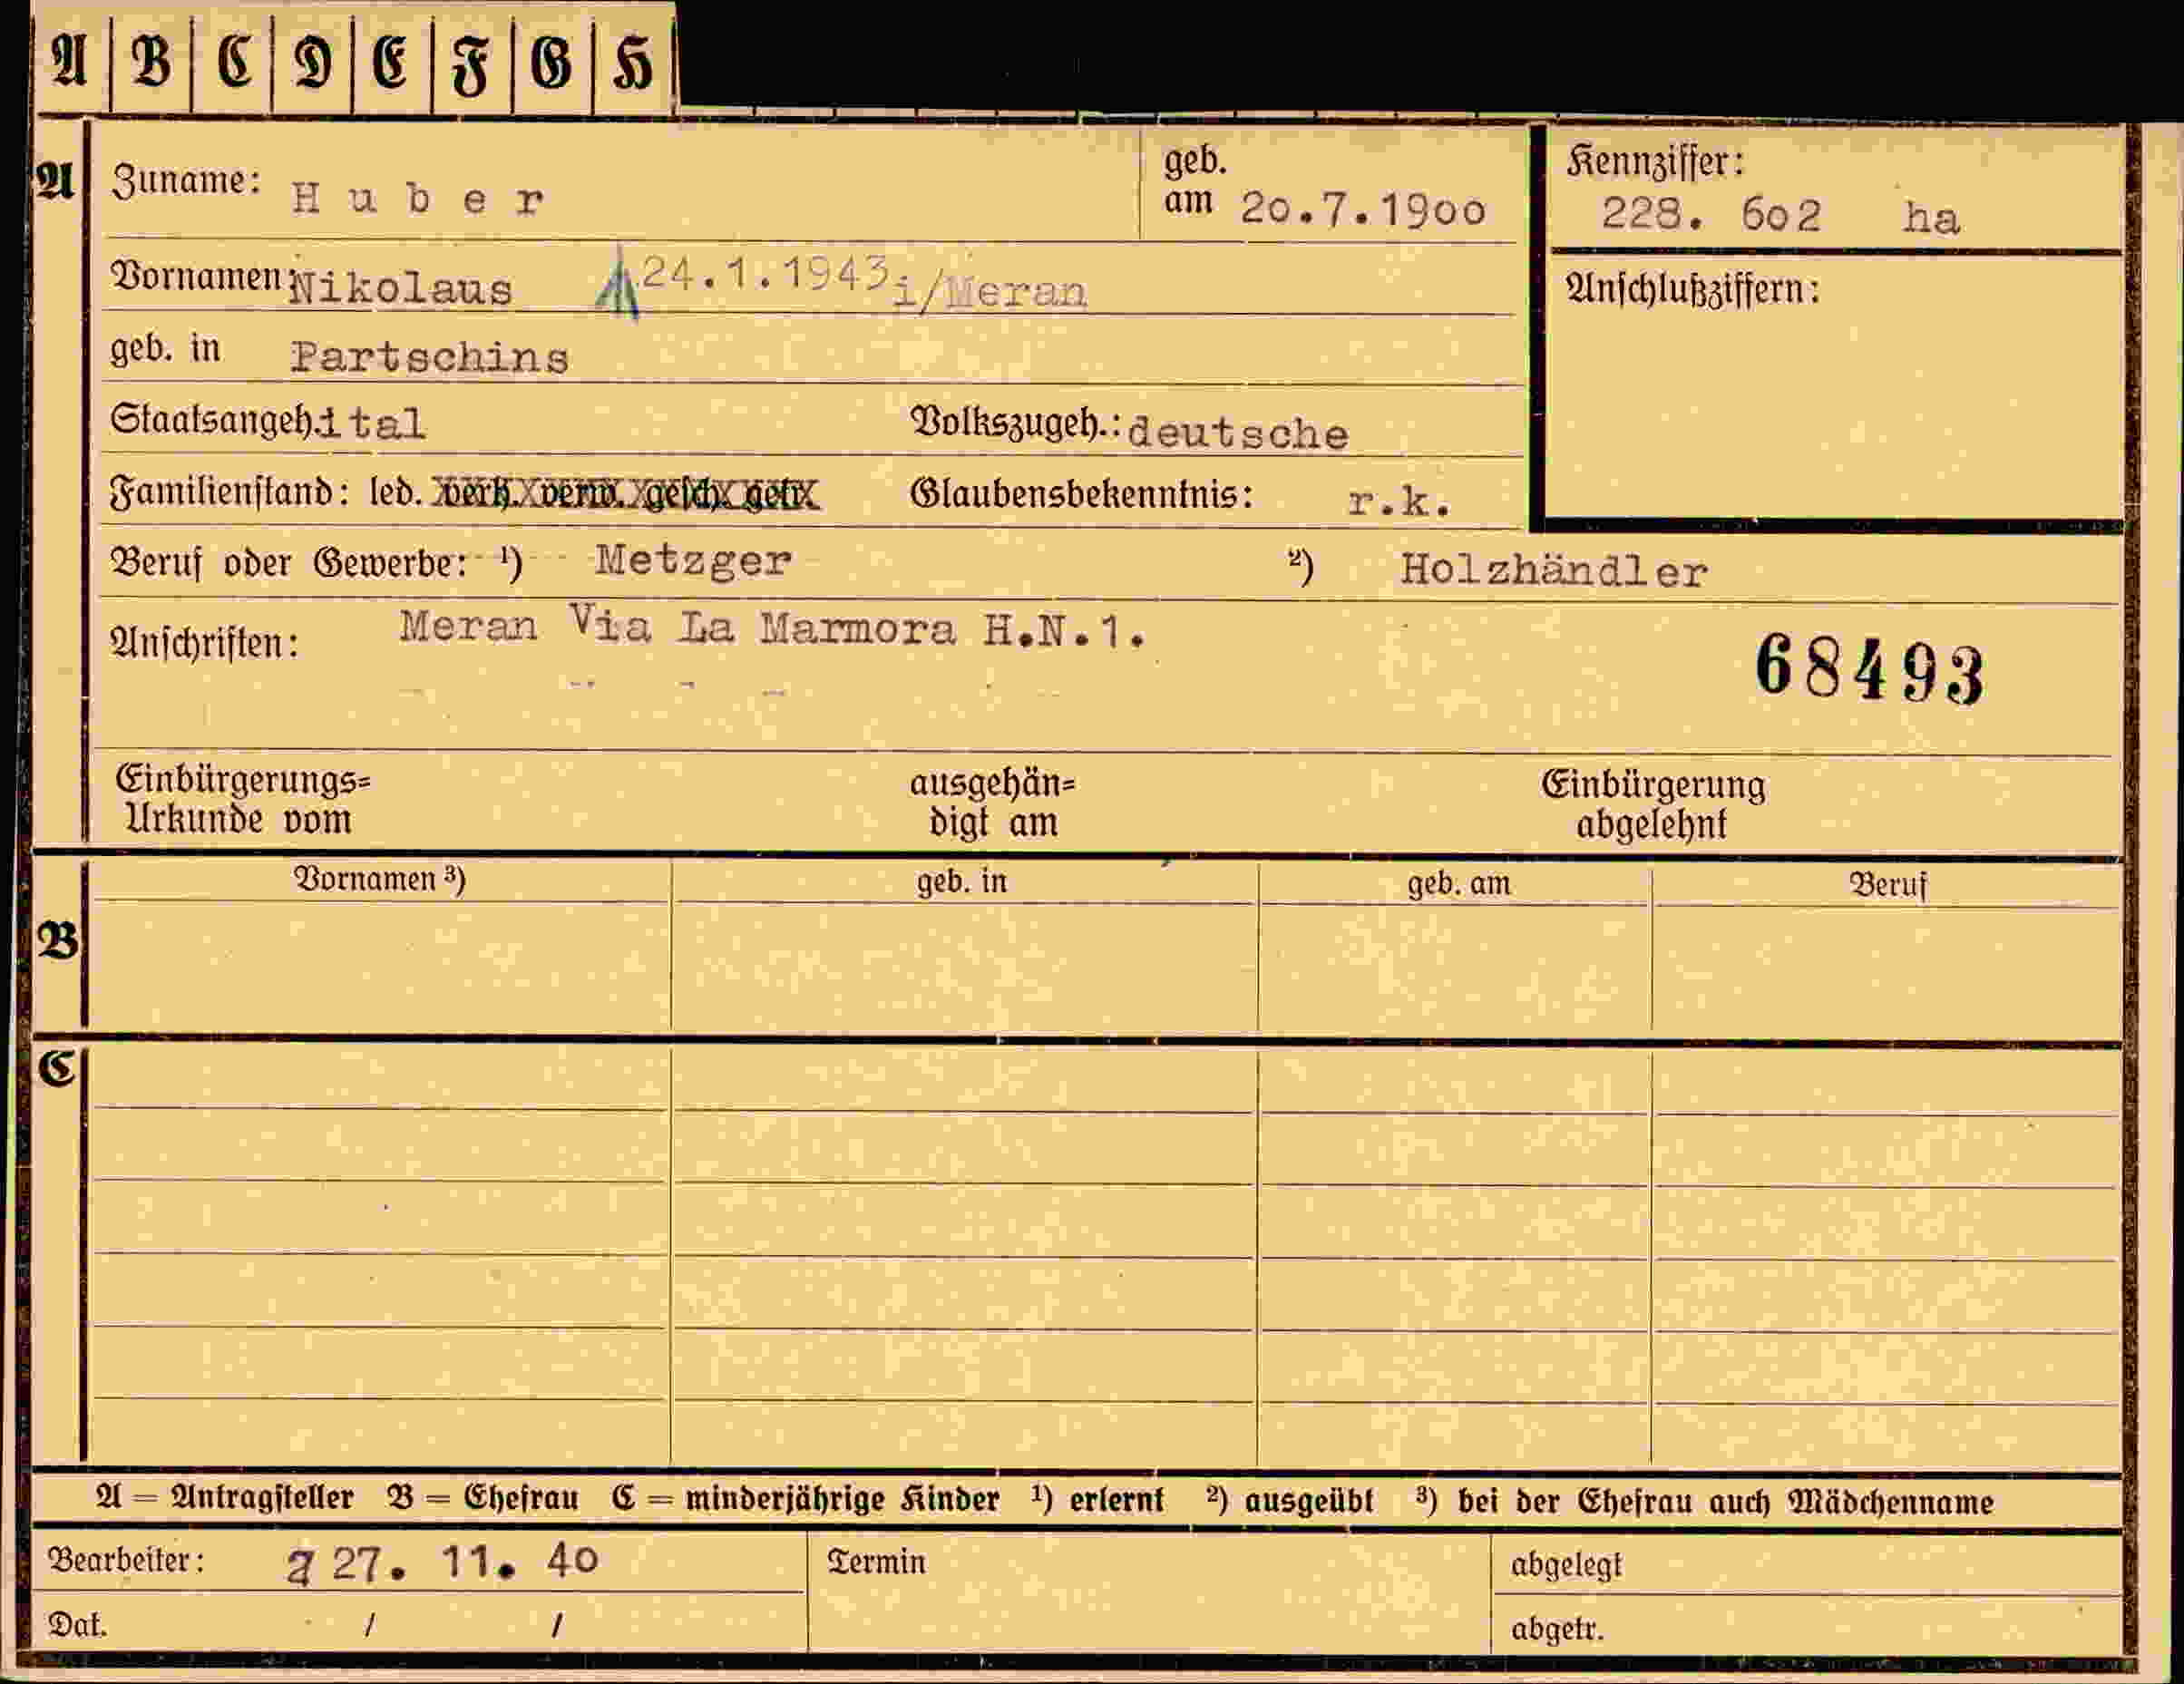 A B C D E F G H
A
Zuname: Huber
geb. am 20.7.1900
Kennziffer:
228. 602 ha
Vornamen: Nikolaus 24.1.1943 i/Meran
Anschlußziffern:
geb. in Partschins
Staatsangeh. ital
Volkszugeh.: deutsche
Familienstand: led. verh. verw. gesch. getr.
Glaubensbekenntnis: r.k.
Beruf oder Gewerbe: ¹) Metzger ²) Holzhändler
Anschriften: Meran Via La Marmora H.N.1.
68493
Einbürgerungs=
Urkunde vom
ausgehän=
digt am
Einbürgerung
abgelehnt
B
Vornamen ³) geb. in geb. am Beruf
C
A = Antragsteller B = Ehefrau C = minderjährige Kinder ¹) erlernt ²) ausgeübt ³) bei der Ehefrau auch Mädchenname
Bearbeiter: 27. 11. 40
Termin
abgelegt
Dat. / /
abgetr.